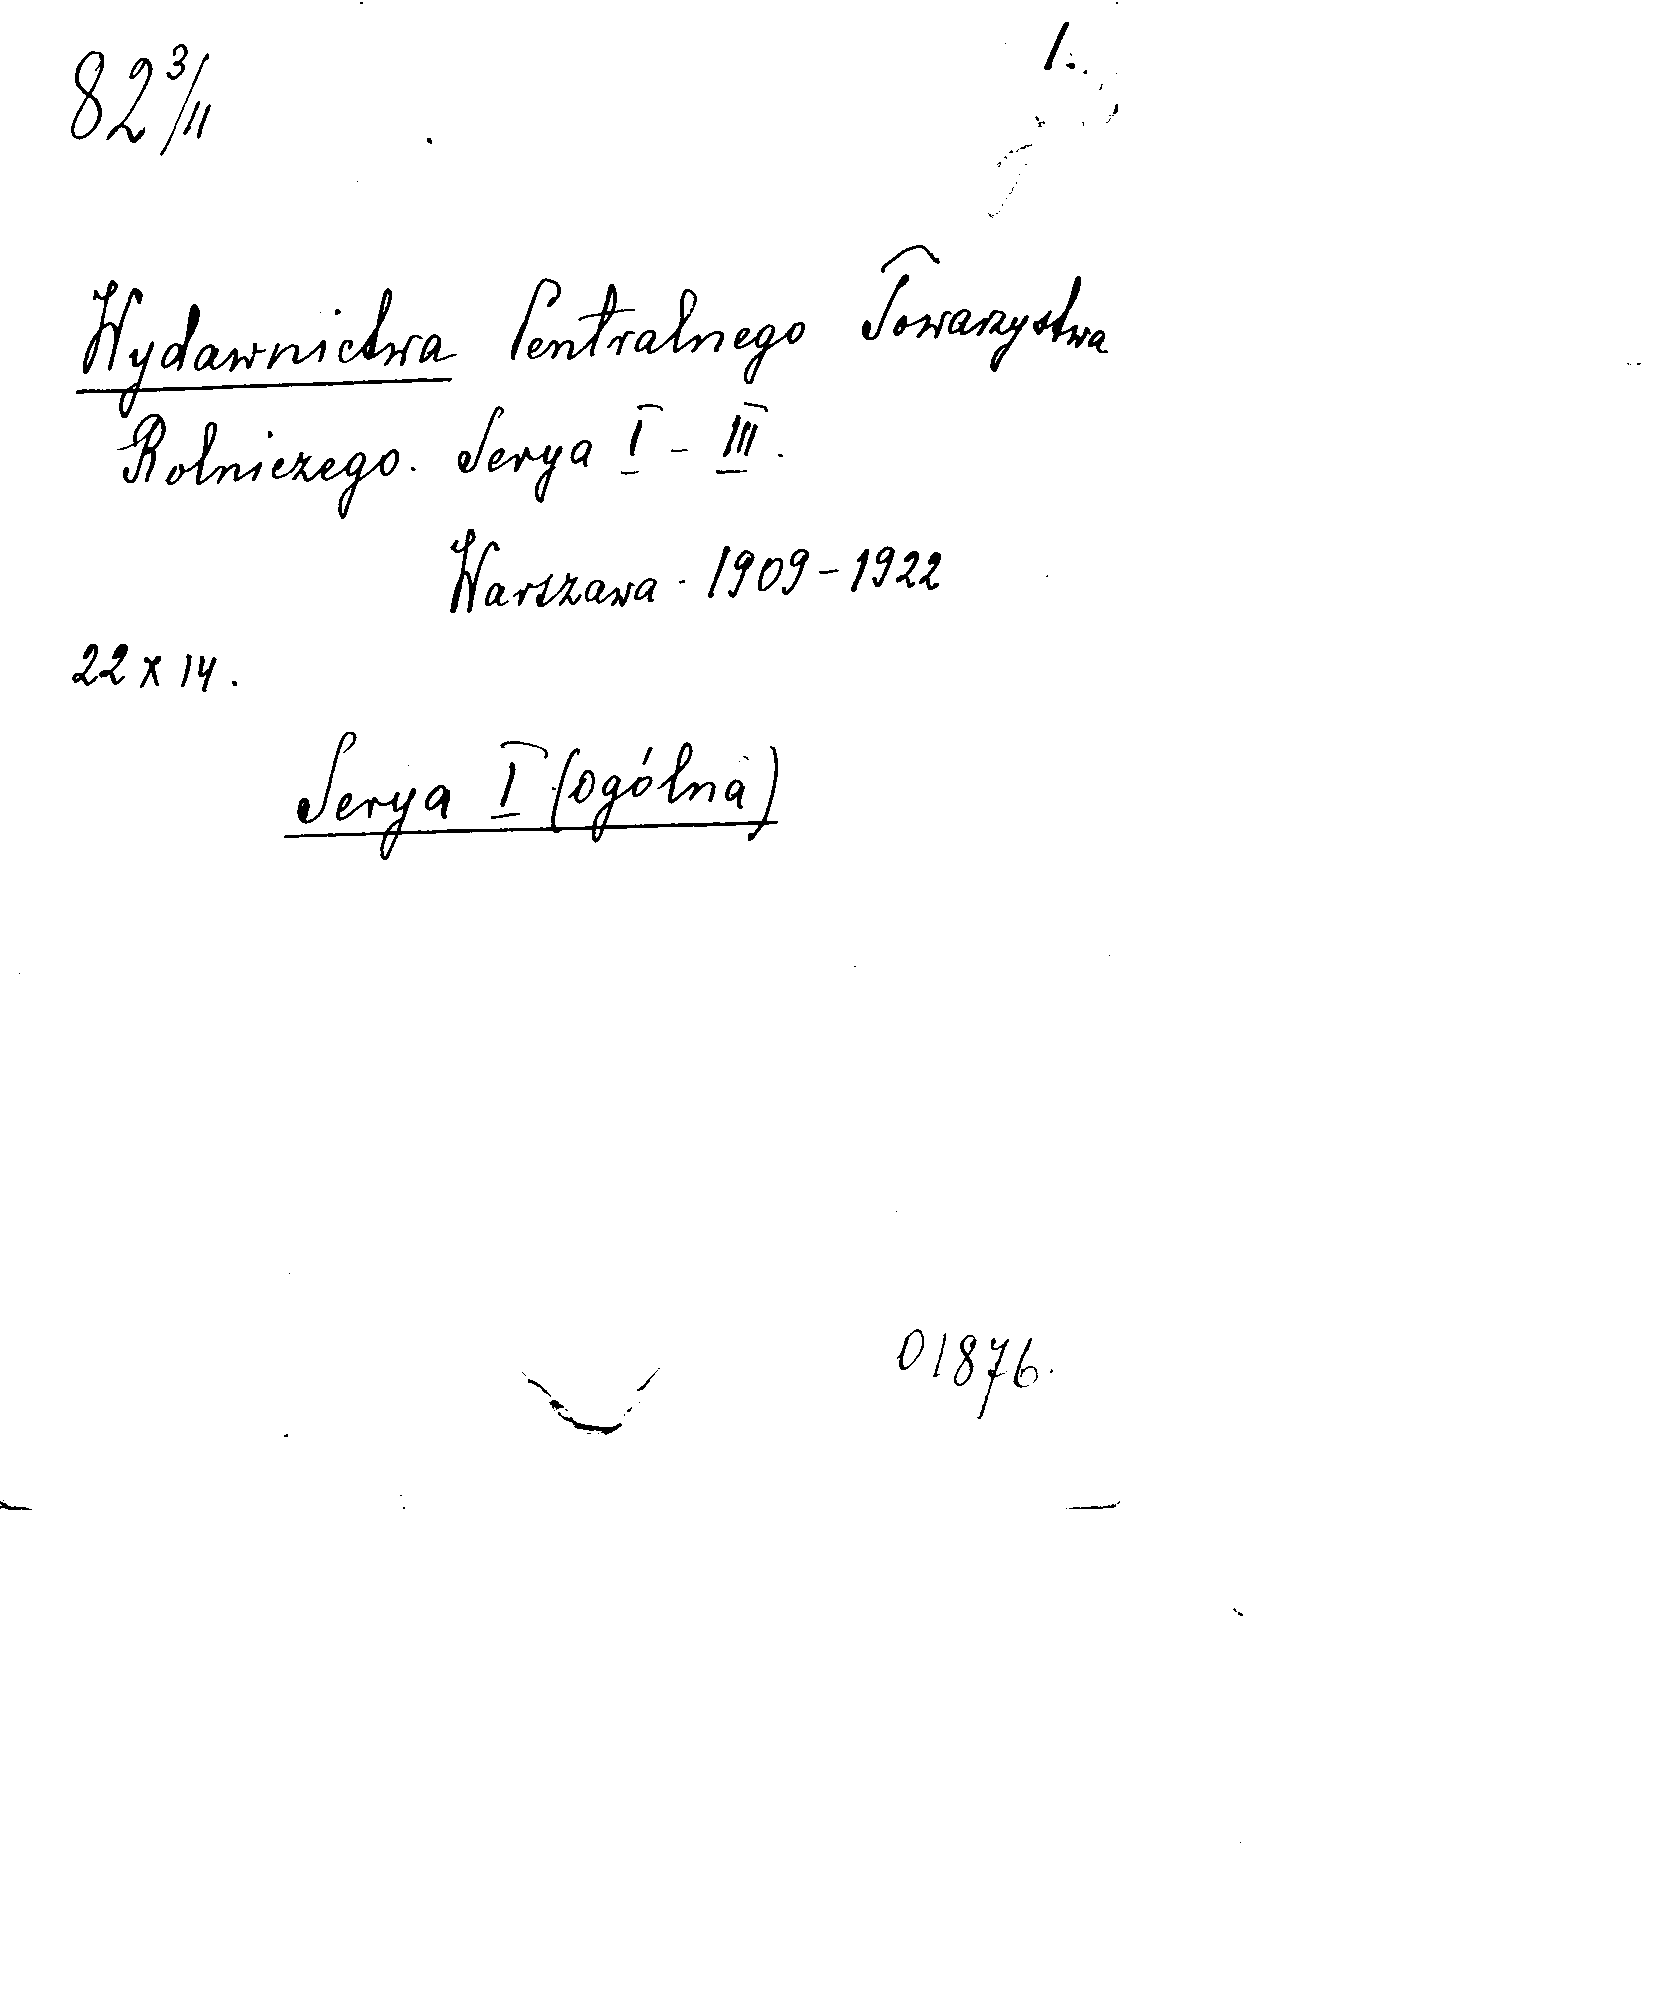 82 3/II
1.
Wydawnictwa Centralnego Towarzystwa
Rolniczego. Serya I - III.
Warszawa. 1909-1922
22 x 14.
Serya I (ogólna)
01876.